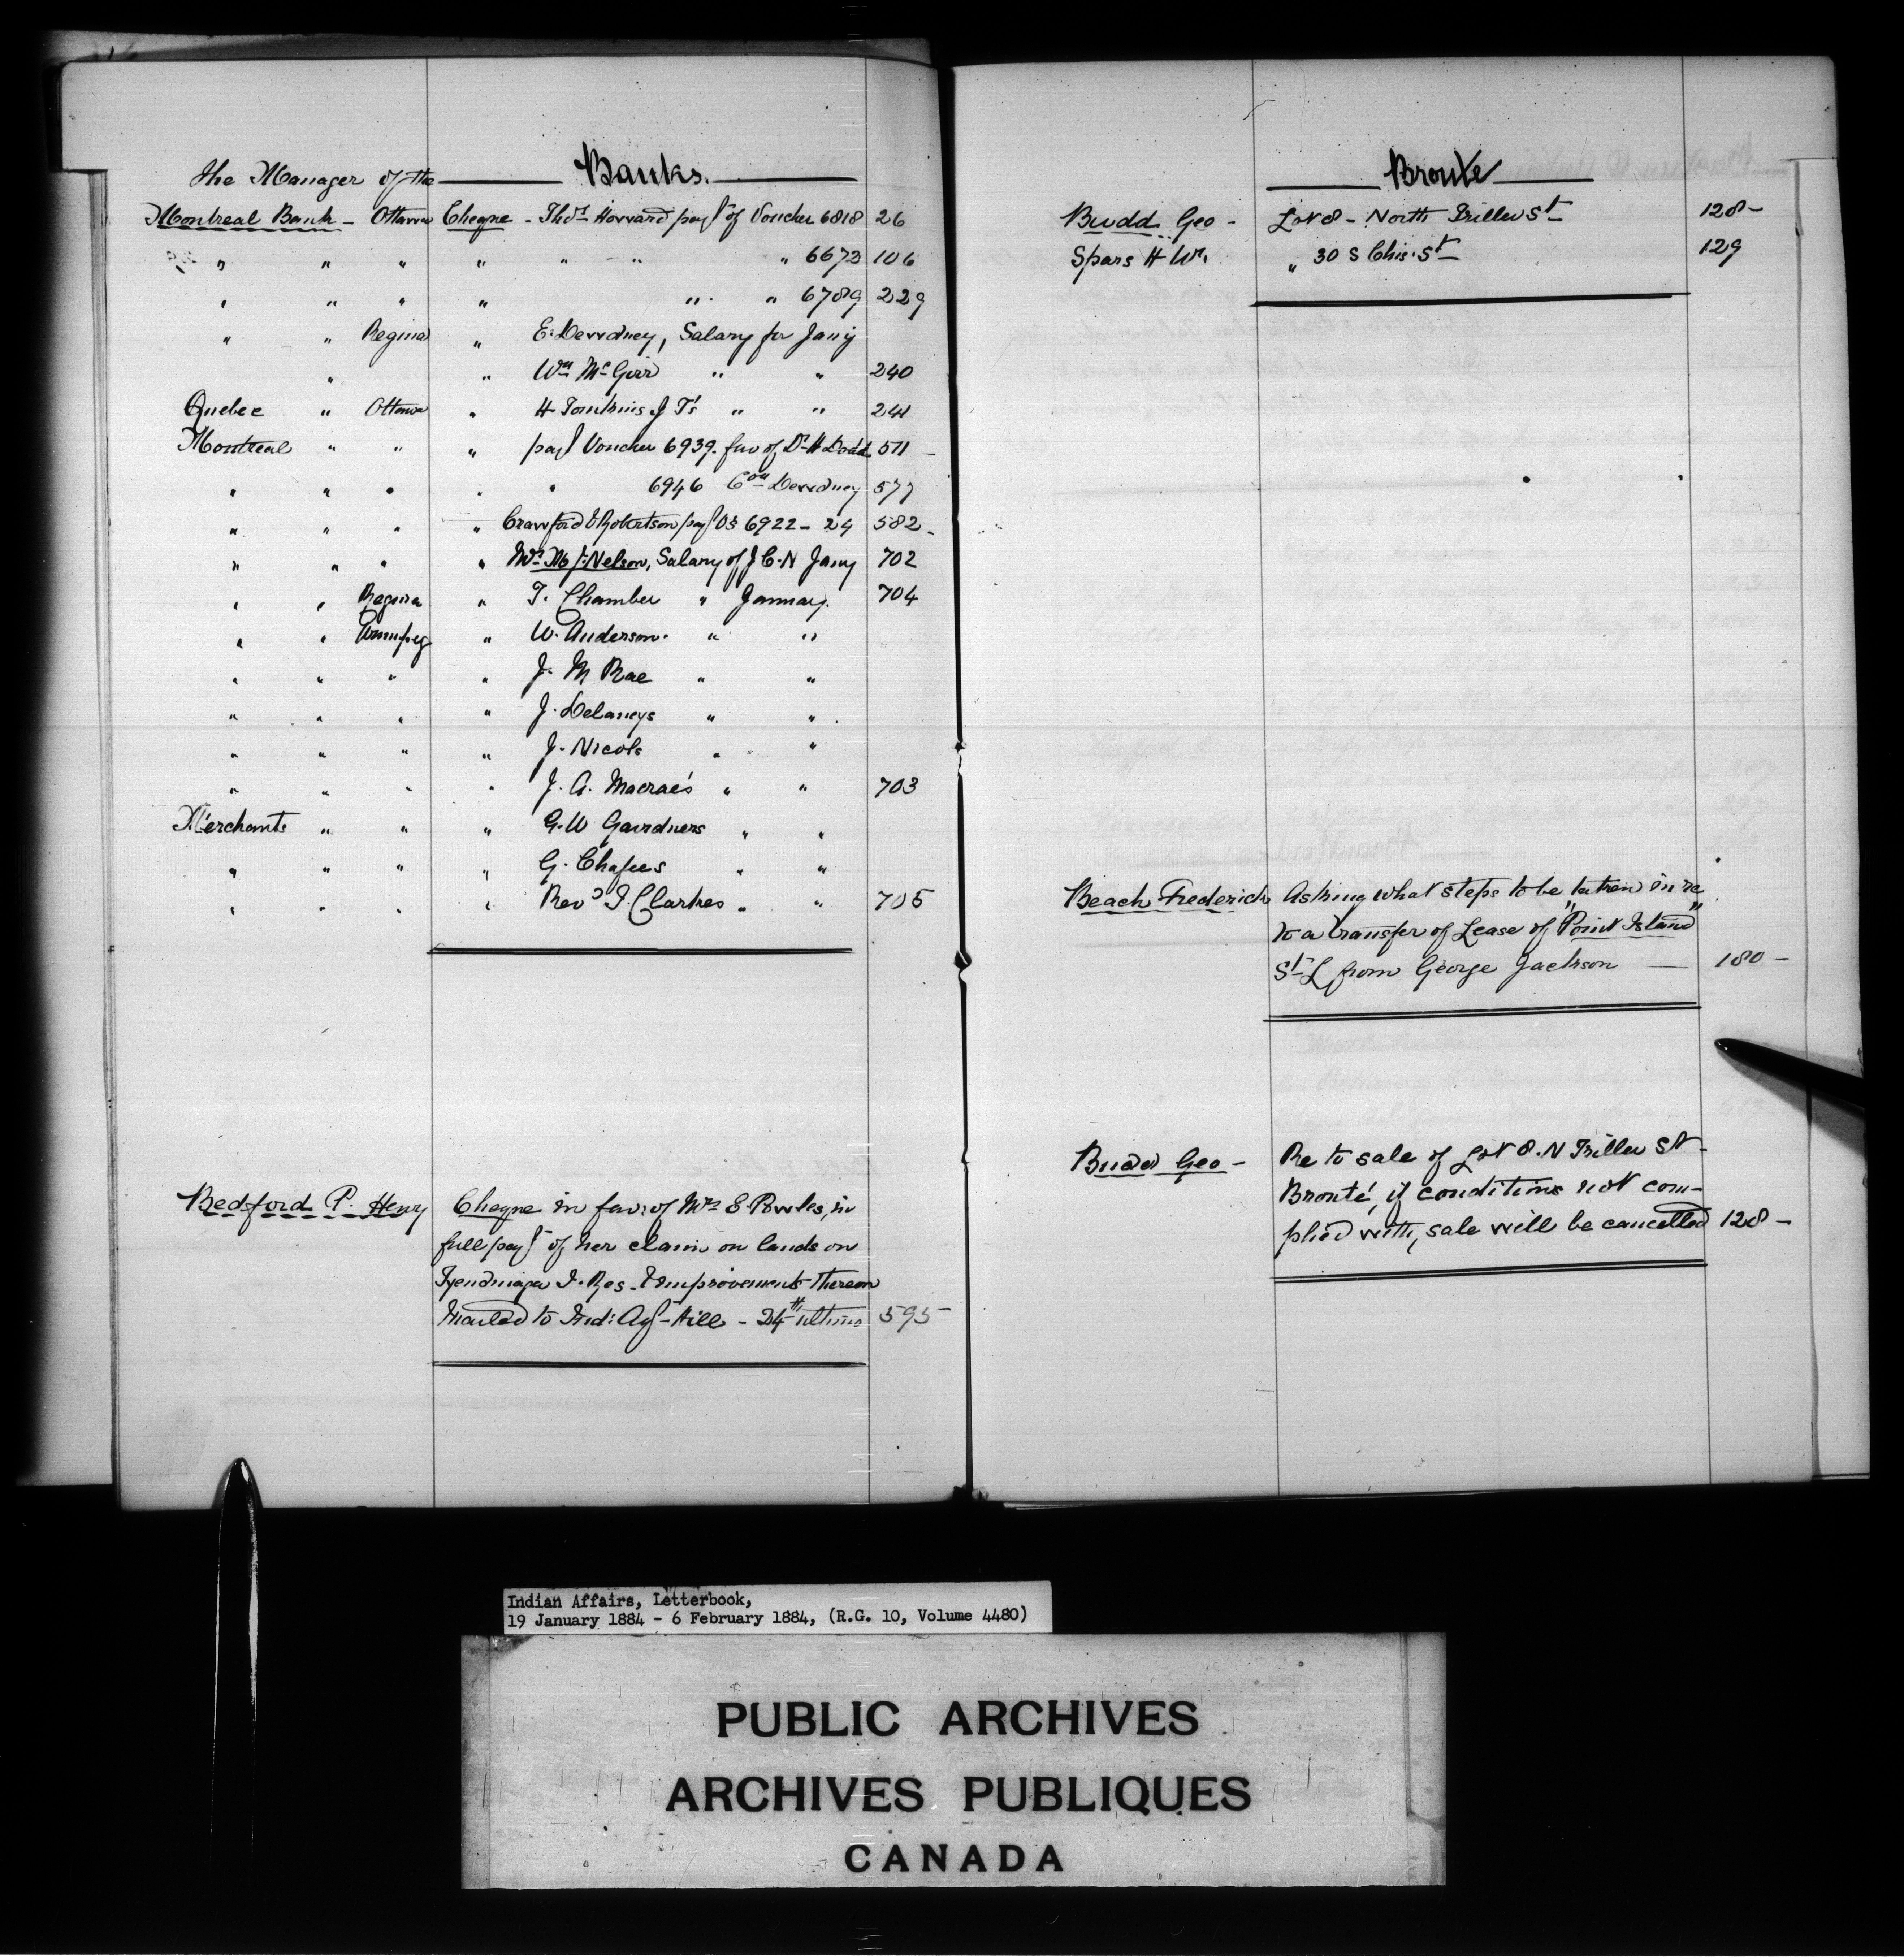 The Manager of the Banks.
Montreal Bank - Ottawa Cheque - Thos Howard payt of Voucher 6818 26
" " " " " " " 6673 106
" " " " " " 6789 229
" " Regina " E. Dewdney, Salary for Jany
" " Wm McGirr " " 240
Quebec " Ottawa " H Tomkins J T's " " 241
Montreal " " " payt Voucher 6939. fav of Dr H Dodd 511 -
" " " " " 6946 Com Dewdney 577
" " " " Crawford & Robertson payt Os 6922 - 24 582 -
" " " " Mrs M J. Nelson, Salary of J C. N Jany 702
" " Regina " T. Chamber " January. 704
" " Winnipeg " W. Anderson. " "
" " " " J. M Rae " "
" " " " J. Delaneys " "
" " " " J. Nicols " "
" " " " J. A. Macrae's " " 703
Merchants " " " G. W Gairdners " "
" " " " G. Chafees " "
" " " " Revd J. Clarkes " " 705
Bedford P. Henry Cheque in fav: of Mrs E. Powles, in
full payt of her claim on lands on
Tyendinaga I. Res. & improvements thereon
Mailed to Ind: Agt Hill - 24th ultimo 595 -
Bronte
Budd Geo - Lot 8 - North Triller St 128 -
Spars H Wm. " 30 S Chis. St 129
Beach Frederick Asking what steps to be taken in re
to a transfer of Lease of "Point Island"
St L from George Jackson — 180 -
Budd Geo - Re to sale of Lot 8. N Triller St -
Bronté, if conditions not com-
plied with, sale will be cancelled 128 -
Indian Affairs, Letterbook,
19 January 1884 - 6 February 1884, (R.G. 10, Volume 4480)
PUBLIC ARCHIVES
ARCHIVES PUBLIQUES
CANADA